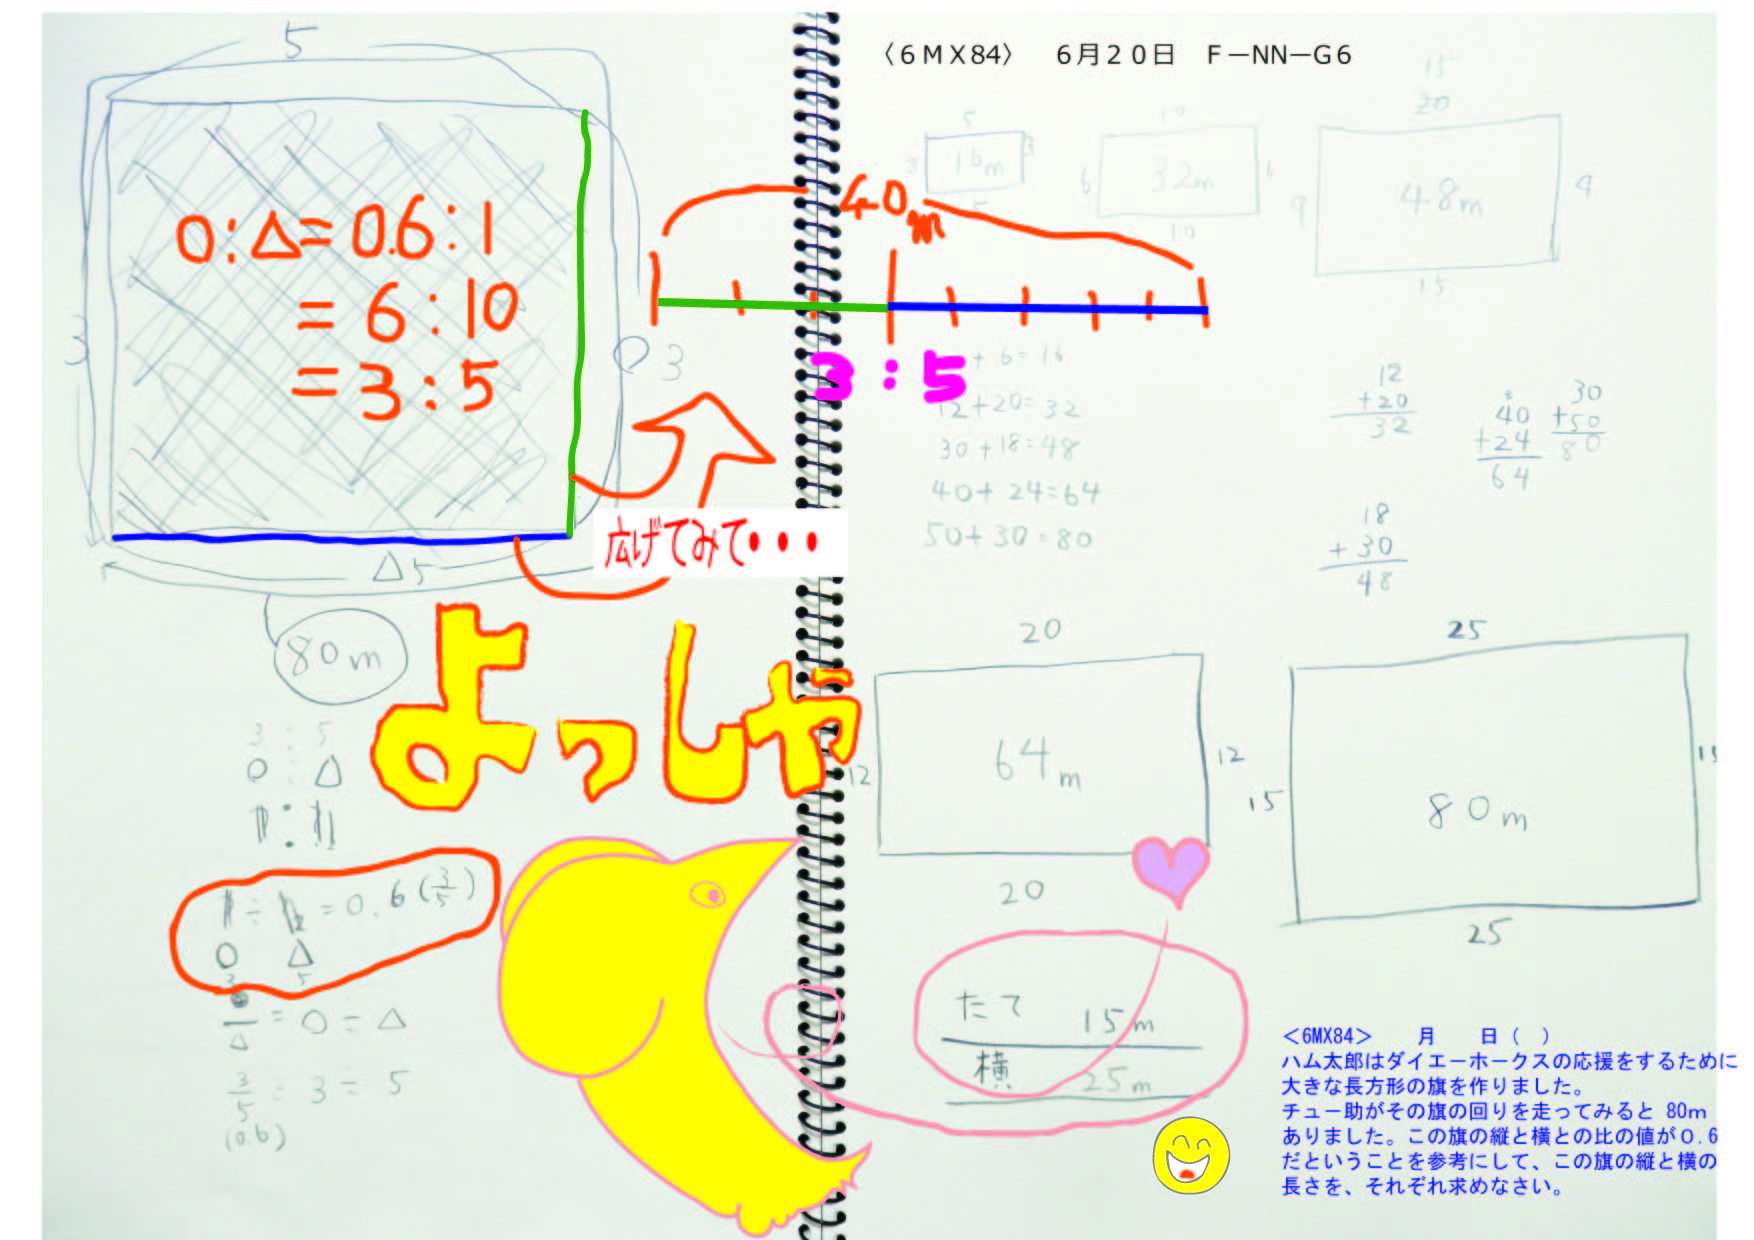 〈６ＭＸ84〉　６月２０日　Ｆ－NN－Ｇ６
5
○:△=0.6:1
=6:10
=3:5
3
○3
△5
80m
40m
3:5
広げてみて・・・
よっしゃ
3:5
○:△
=0.6(3/5)
○ △
3 5
=○÷△
3/5=3÷5
(0.6)
5
3
16m
3
5
10
6
32m
6
10
15
20
9
48m
9
15
+6=16
12+20=32
30+18=48
40+24=64
50+30=80
12
+20
32
40
+24
64
30
+50
80
18
+30
48
20
12
64m
12
20
25
15
80m
15
25
たて 15m
横 25m
＜6MX84＞　　月　　日（　）
ハム太郎はダイエーホークスの応援をするために
大きな長方形の旗を作りました。
チュー助がその旗の回りを走ってみると 80ｍ
ありました。この旗の縦と横との比の値が０.６
だということを参考にして、この旗の縦と横の
長さを、それぞれ求めなさい。